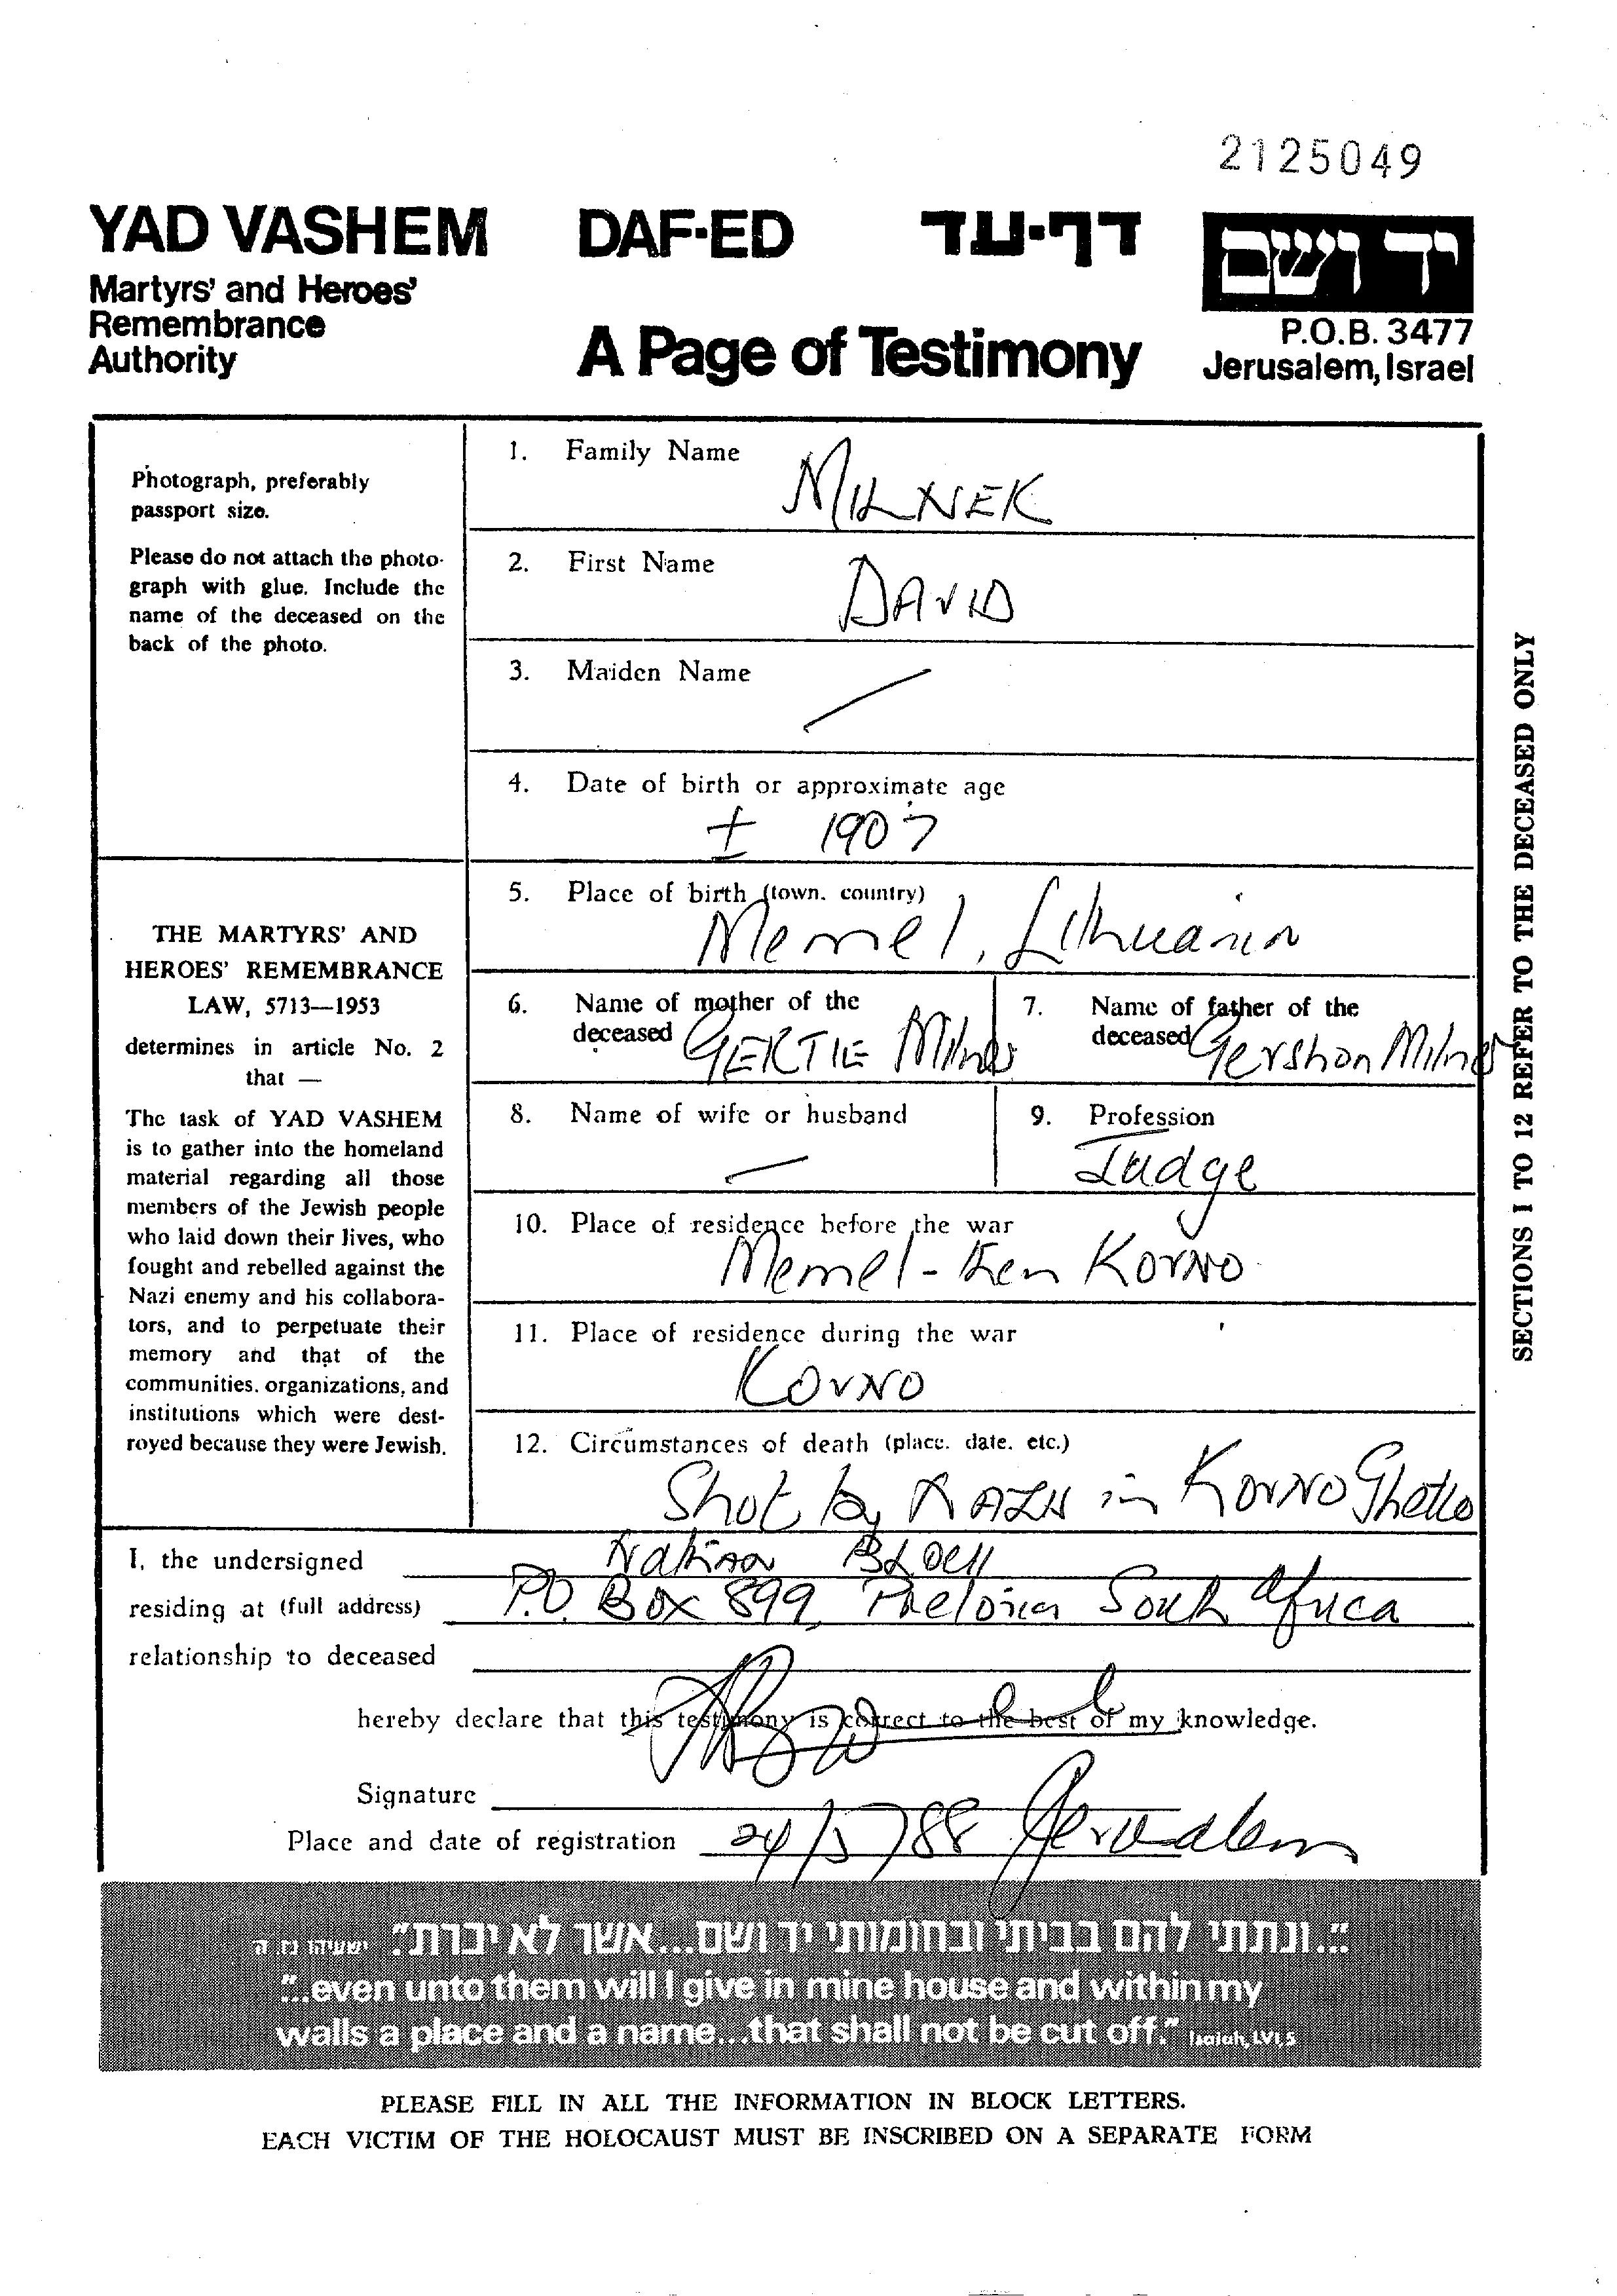 2125049
YAD VASHEM DAF-ED דף-עד יד ושם
Martyrs' and Heroes'
Remembrance
Authority
A Page of Testimony
P.O.B. 3477
Jerusalem, Israel
Photograph, preferably
passport size.
Please do not attach the photo-
graph with glue. Include the
name of the deceased on the
back of the photo.
THE MARTYRS' AND
HEROES' REMEMBRANCE
LAW, 5713—1953
determines in article No. 2
that —
The task of YAD VASHEM
is to gather into the homeland
material regarding all those
members of the Jewish people
who laid down their lives, who
fought and rebelled against the
Nazi enemy and his collabora-
tors, and to perpetuate their
memory and that of the
communities, organizations, and
institutions which were dest-
royed because they were Jewish.
1. Family Name
MILNEK
2. First Name
DAVID
3. Maiden Name
/
4. Date of birth or approximate age
± 1907
5. Place of birth (town, country)
Memel, Lithuania
6. Name of mother of the
deceased GERTIE
7. Name of father of the
deceased Gershon
8. Name of wife or husband
—
9. Profession
Judge
10. Place of residence before the war
Memel - then KOVNO
11. Place of residence during the war
KOVNO
12. Circumstances of death (place, date, etc.)
Shot by NAZIS in KOVNO Ghetto
SECTIONS 1 TO 12 REFER TO THE DECEASED ONLY
I, the undersigned Nathan
residing at (full address) P.O. Box 899, Pretoria South Africa
relationship to deceased
hereby declare that this testimony is correct to the best of my knowledge.
Signature
Place and date of registration 24/5/88 Jerusalem
"...ונתתי להם בביתי ובחומותי יד ושם...אשר לא יכרת". ישעיהו נו ה
"...even unto them will I give in mine house and within my
walls a place and a name...that shall not be cut off." Isaiah, LVI,5
PLEASE FILL IN ALL THE INFORMATION IN BLOCK LETTERS.
EACH VICTIM OF THE HOLOCAUST MUST BE INSCRIBED ON A SEPARATE FORM